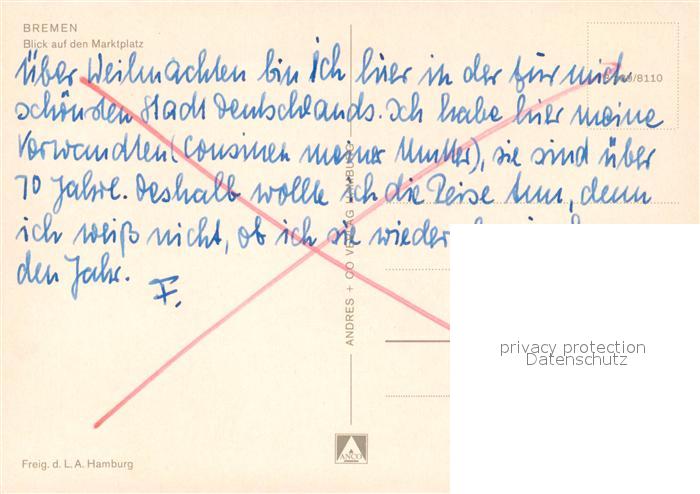 BREMEN
Blick auf den Marktplatz
/8110
Über Weihnachten bin ich hier in der für mich
schönsten Stadt Deutschlands. Ich habe hier meine
Verwandten (Cousinen meiner Mutter), sie sind über
70 Jahre. Deshalb wollte ich die Reise tun, denn
ich weiß nicht, ob ich sie wieder
den Jahr.
F.
ANDRES + CO VERLAG HAMBURG
privacy protection
Datenschutz
ANCO
Freig. d. L. A. Hamburg